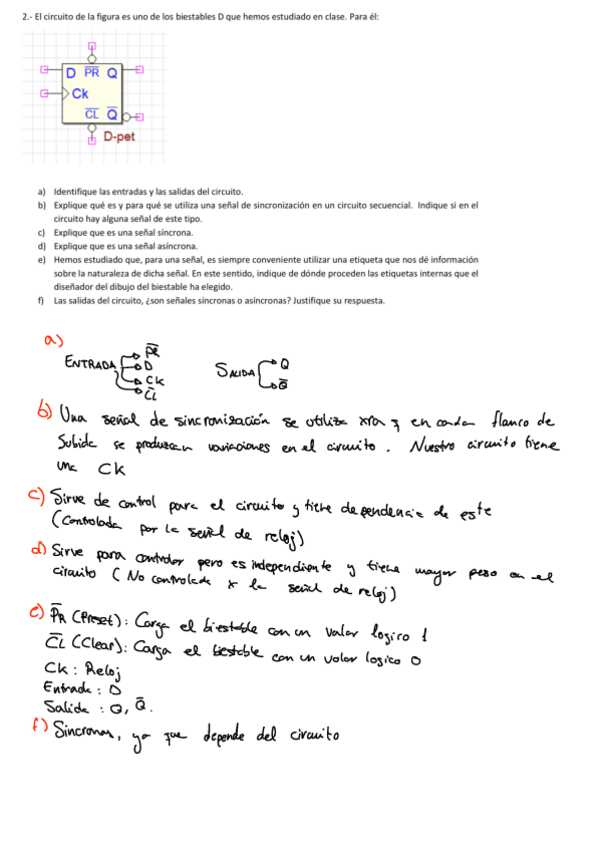 2.- El circuito de la figura es uno de los biestables D que hemos estudiado en clase. Para él:
D P̅R̅ Q
Ck
C̅L̅ Q̅
D-pet
a) Identifique las entradas y las salidas del circuito.
b) Explique qué es y para qué se utiliza una señal de sincronización en un circuito secuencial. Indique si en el
circuito hay alguna señal de este tipo.
c) Explique que es una señal síncrona.
d) Explique que es una señal asíncrona.
e) Hemos estudiado que, para una señal, es siempre conveniente utilizar una etiqueta que nos dé información
sobre la naturaleza de dicha señal. En este sentido, indique de dónde proceden las etiquetas internas que el
diseñador del dibujo del biestable ha elegido.
f) Las salidas del circuito, ¿son señales síncronas o asíncronas? Justifique su respuesta.
a)
ENTRADA P̅R̅ D CK C̅L̅
SALIDA Q Q̅
b) Una señal de sincronización se utiliza xra q en cada flanco de
Subida se produzcan variaciones en el circuito. Nuestro circuito tiene
una CK
c) Sirve de control para el circuito y tiene dependencia de este
(Controlada por la señal de reloj)
d) Sirve para controlar pero es independiente y tiene mayor peso en el
circuito (No controlada x la señal de reloj)
e) P̅R̅ (Preset): Carga el biestable con un valor logico 1
C̅L̅ (Clear): Carga el biestable con un valor logico 0
CK: Reloj
Entrada: D
Salida: Q, Q̅.
f) Sincronas, ya que depende del circuito